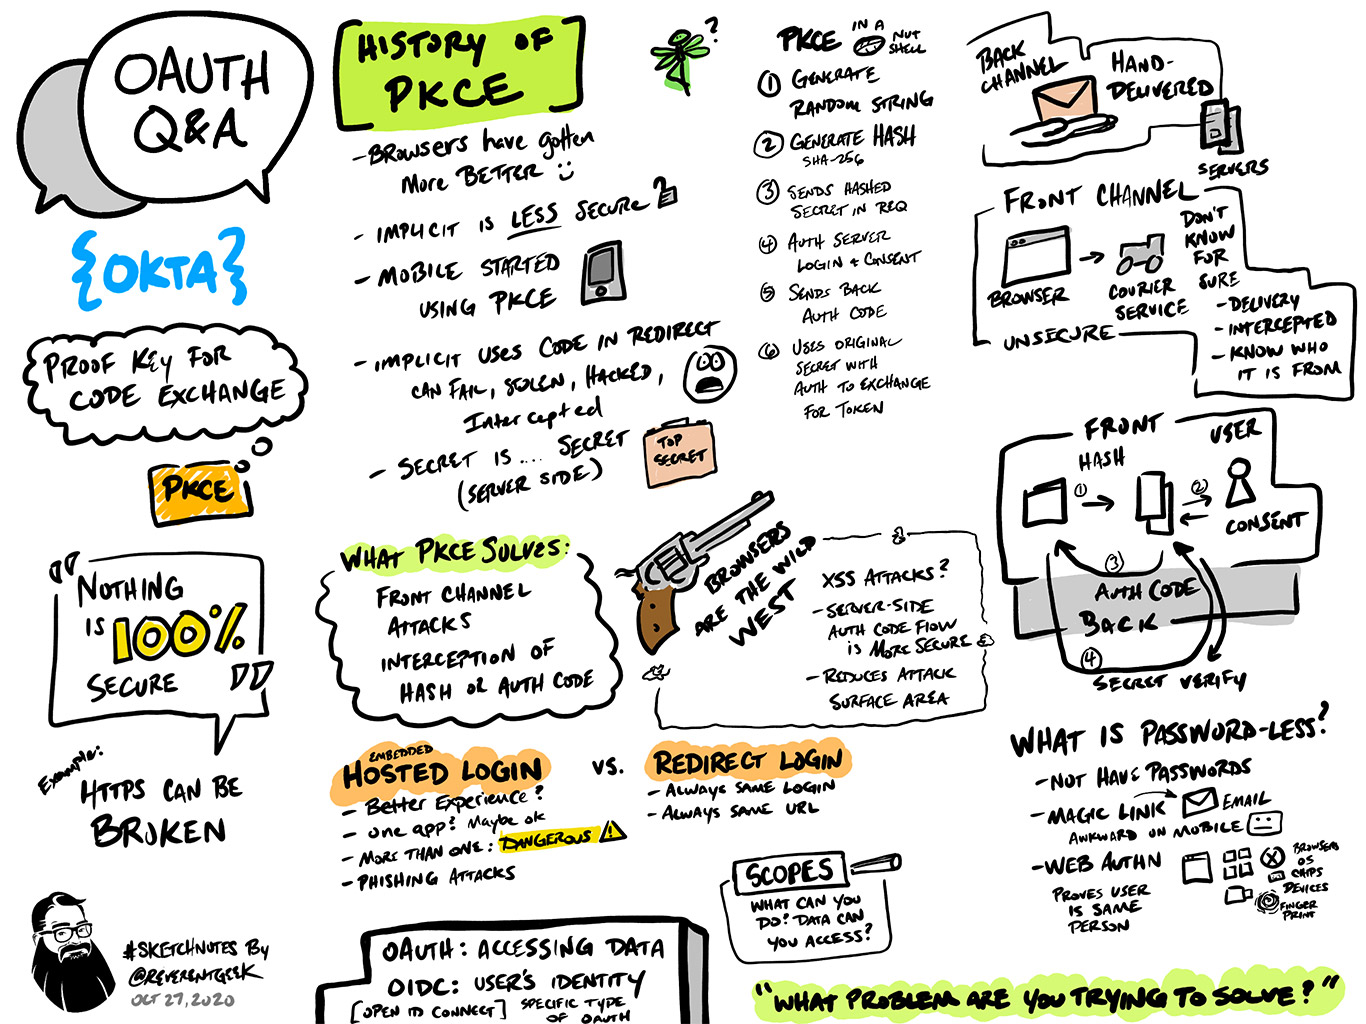 OAUTH
Q&A
{OKTA}
PROOF KEY FOR
CODE EXCHANGE
PKCE
"NOTHING
IS 100%
SECURE"
Example:
HTTPS CAN BE
BROKEN
#SKETCHNOTES BY
@REVERENTGEEK
OCT 27, 2020
HISTORY OF
PKCE
?
- BROWSERS have gotten
More BETTER
- IMPLICIT IS LESS SECURE?
- MOBILE STARTED
USING PKCE
- IMPLICIT USES CODE IN REDIRECT
CAN FAIL, STOLEN, HACKED,
Intercepted
- SECRET IS .... SECRET
(SERVER SIDE)
TOP
SECRET
WHAT PKCE SOLVES:
FRONT CHANNEL
ATTACKS
INTERCEPTION OF
HASH OR AUTH CODE
BROWSERS
ARE THE WILD
WEST
XSS ATTACKS?
- SERVER-SIDE
AUTH CODE FLOW
IS MORE SECURE
- REDUCES ATTACK
SURFACE AREA
EMBEDDED
HOSTED LOGIN
- Better Experience?
- One app? Maybe ok
- MORE THAN ONE: DANGEROUS !
- PHISHING ATTACKS
VS.
REDIRECT LOGIN
- ALWAYS SAME LOGIN
- ALWAYS SAME URL
SCOPES
WHAT CAN YOU
DO? DATA CAN
YOU ACCESS?
OAUTH: ACCESSING DATA
OIDC: USER'S IDENTITY
[OPEN ID CONNECT] SPECIFIC TYPE
OF OAUTH
PKCE IN A NUT
SHELL
① GENERATE
RANDOM STRING
② GENERATE HASH
SHA-256
③ SENDS HASHED
SECRET IN REQ
④ AUTH SERVER
LOGIN + CONSENT
⑤ SENDS BACK
AUTH CODE
⑥ USES ORIGINAL
SECRET WITH
AUTH TO EXCHANGE
FOR TOKEN
BACK
CHANNEL
HAND-
DELIVERED
SERVERS
FRONT CHANNEL
BROWSER
COURIER
SERVICE
UNSECURE
DON'T
KNOW
FOR
SURE
- DELIVERY
- INTERCEPTED
- KNOW WHO
IT IS FROM
FRONT
HASH
USER
① ②
CONSENT
③
AUTH CODE
BACK
④
SECRET VERIFY
WHAT IS PASSWORD-LESS?
- NOT HAVE PASSWORDS
- MAGIC LINK EMAIL
AWKWARD ON MOBILE
- WEB AUTHN
PROVES USER
IS SAME
PERSON
BROWSERS
OS
CHIPS
DEVICES
FINGER
PRINT
"WHAT PROBLEM ARE YOU TRYING TO SOLVE?"